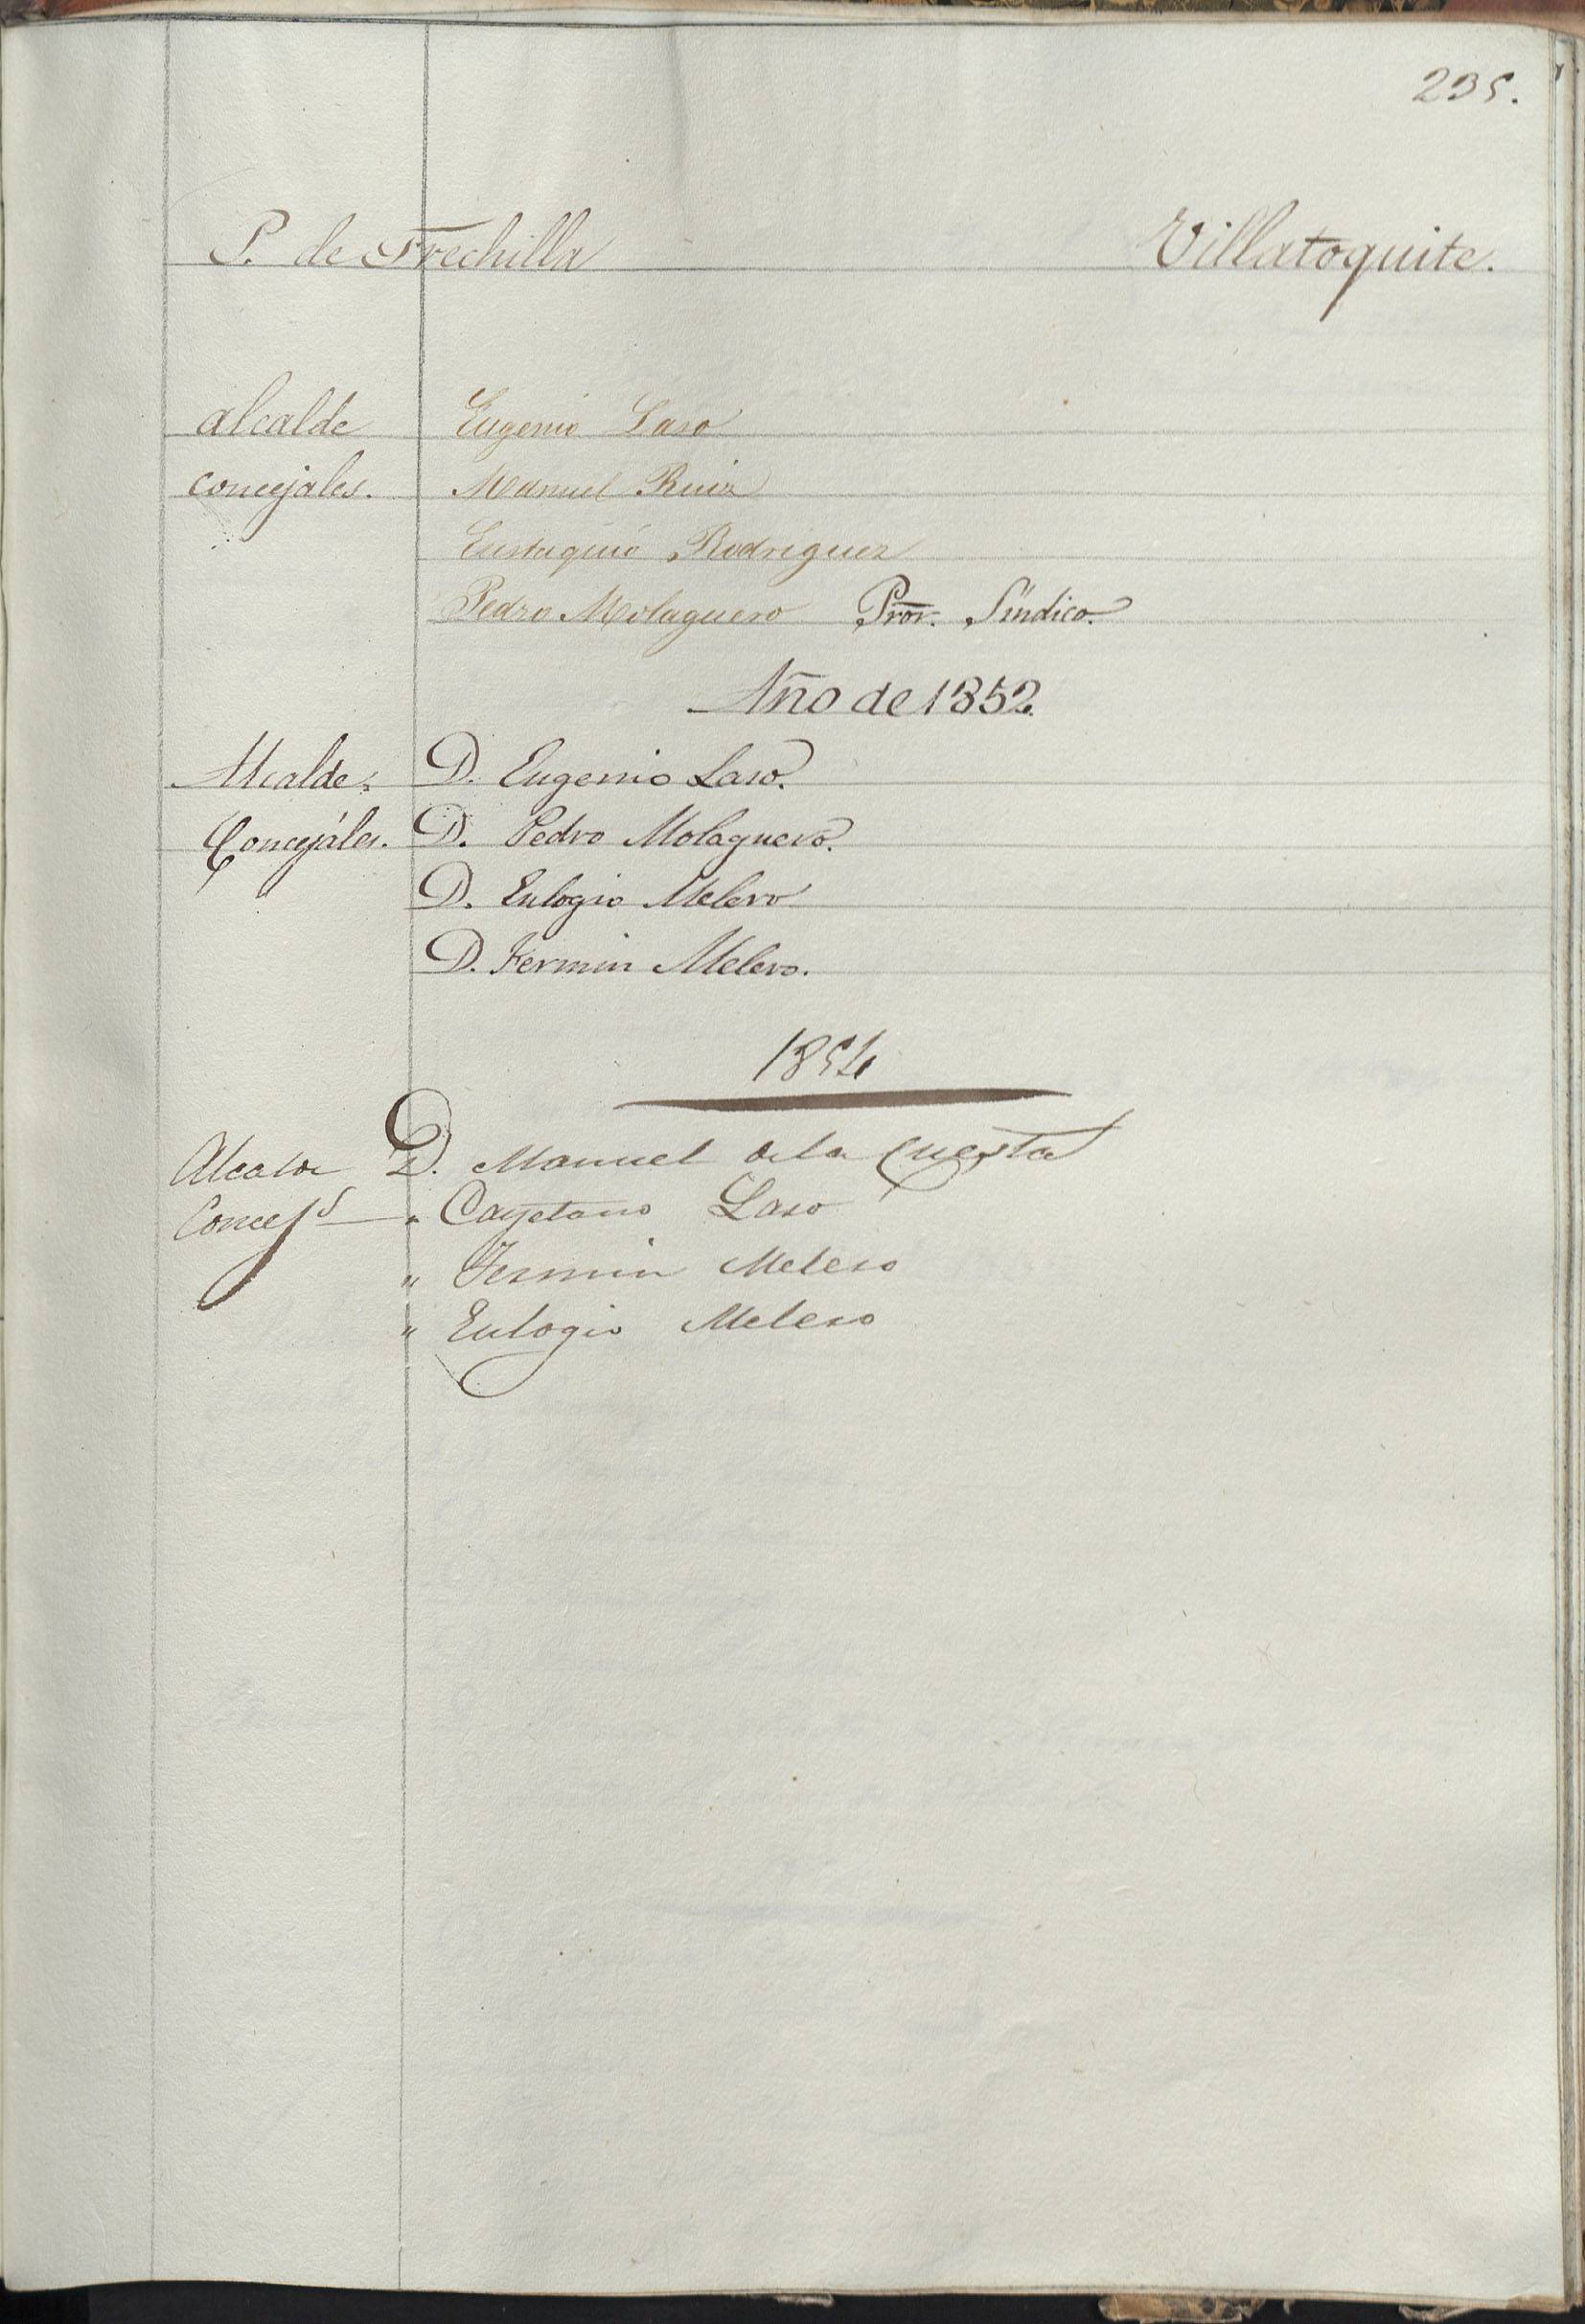 235.
P. de Frechilla Villatoquite.
alcalde Eugenio Laso
concejales. Manuel Ruiz
Eustaquio Rodriguez
Pedro Molaguero Pror. Síndico.
Año de 1852.
Alcalde D. Eugenio Laso.
Concejáles. D. Pedro Molaguero.
D. Eulogio Melero
D. Fermin Melero.
1854
Alcalde D. Manuel de la Cuesta
Concejs " Cayetano Laso
" Fermin Melero
" Eulogio Melero